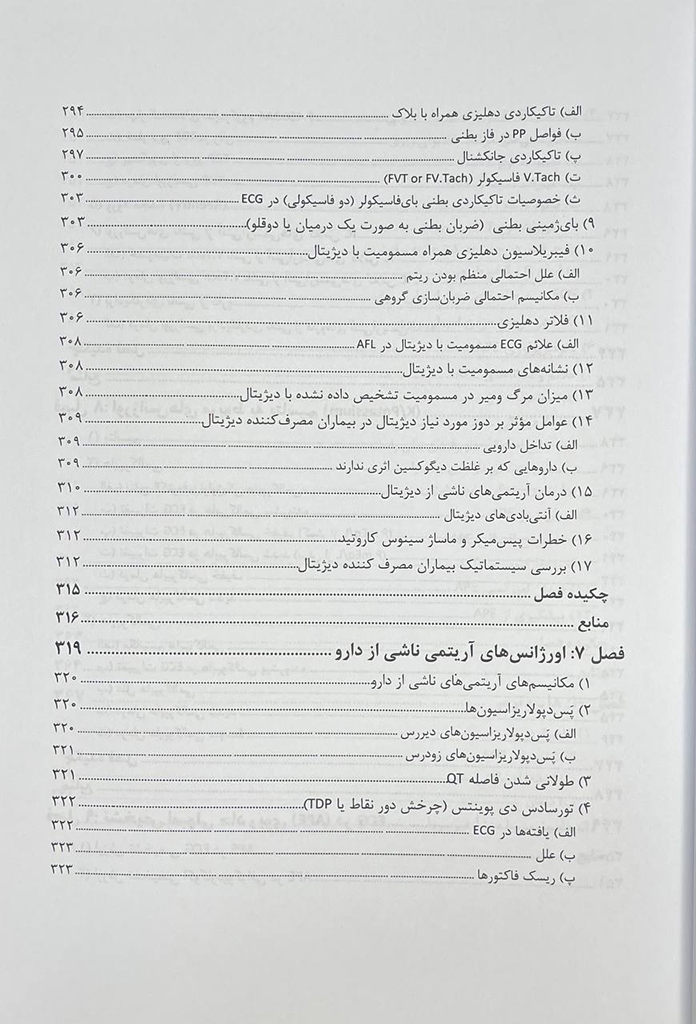 الف) تاکیکاردی دهلیزی همراه با بلاک ........ ۲۹۴
ب) فواصل PP در فاز بطنی ........ ۲۹۵
پ) تاکیکاردی جانکشنال ........ ۲۹۷
ت) V.Tach فاسیکولر (FVT or FV.Tach) ........ ۳۰۰
ث) خصوصیات تاکیکاردی بطنی بای‌فاسیکولر (دو فاسیکولی) در ECG ........ ۳۰۳
۹) بای‌ژمینی بطنی (ضربان بطنی به صورت یک درمیان یا دوقلو) ........ ۳۰۳
۱۰) فیبریلاسیون دهلیزی همراه مسمومیت با دیژیتال ........ ۳۰۶
الف) علل احتمالی منظم بودن ریتم ........ ۳۰۶
ب) مکانیسم احتمالی ضربان‌سازی گروهی ........ ۳۰۶
۱۱) فلاتر دهلیزی ........ ۳۰۶
الف) علائم ECG مسمومیت با دیژیتال در AFL ........ ۳۰۸
۱۲) نشانه‌های مسمومیت با دیژیتال ........ ۳۰۸
۱۳) میزان مرگ ومیر در مسمومیت تشخیص داده نشده با دیژیتال ........ ۳۰۸
۱۴) عوامل مؤثر بر دوز مورد نیاز دیژیتال در بیماران مصرف‌کننده دیژیتال ........ ۳۰۹
الف) تداخل دارویی ........ ۳۰۹
ب) داروهایی که بر غلظت دیگوکسین اثری ندارند ........ ۳۰۹
۱۵) درمان آریتمی‌های ناشی از دیژیتال ........ ۳۱۰
الف) آنتی‌بادی‌های دیژیتال ........ ۳۱۲
۱۶) خطرات پیس‌میکر و ماساژ سینوس کاروتید ........ ۳۱۲
۱۷) بررسی سیستماتیک بیماران مصرف کننده دیژیتال ........ ۳۱۲
چکیده فصل ........ ۳۱۵
منابع ........ ۳۱۶
فصل ۷: اورژانس‌های آریتمی ناشی از دارو ........ ۳۱۹
۱) مکانیسم‌های آریتمی‌های ناشی از دارو ........ ۳۲۰
۲) پَس‌دپولاریزاسیون‌ها ........ ۳۲۰
الف) پَس‌دپولاریزاسیون‌های دیررس ........ ۳۲۰
ب) پَس‌دپولاریزاسیون‌های زودرس ........ ۳۲۱
۳) طولانی شدن فاصله QT ........ ۳۲۱
۴) تورسادس دی پوینتس (چرخش دور نقاط یا TDP) ........ ۳۲۲
الف) یافته‌ها در ECG ........ ۳۲۲
ب) علل ........ ۳۲۳
پ) ریسک فاکتورها ........ ۳۲۳